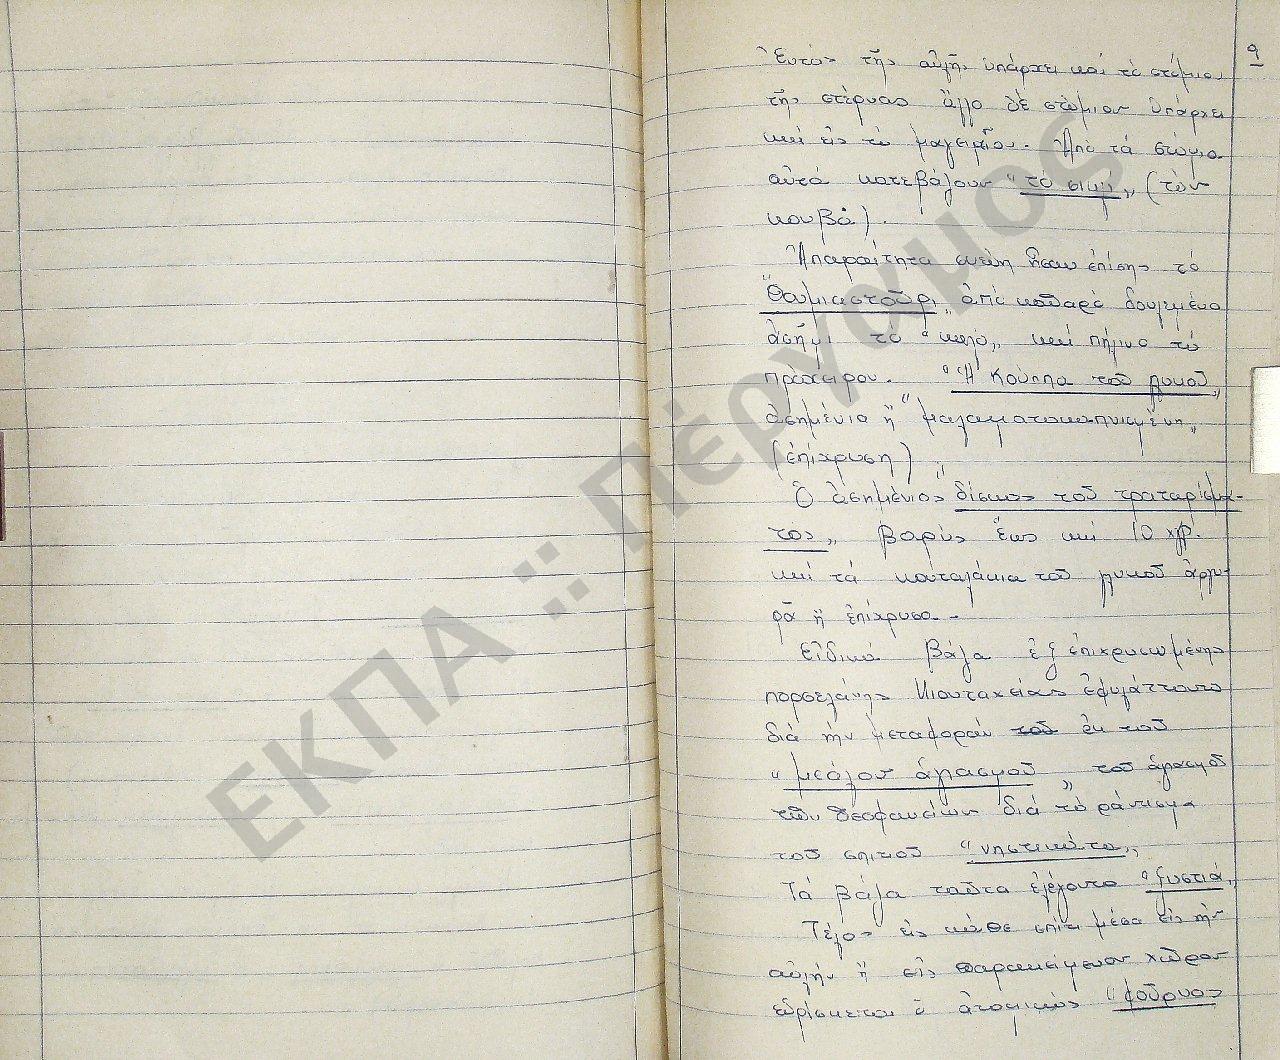 9
Ἐντὸς τῆς αὐλῆς ὑπάρχει καὶ τὸ στόμιο
τῆς στέρνας ἄλλο δὲ στόμιον ὑπάρχει
καὶ εἰς τὸ μαγειρεῖον. Ἀπὸ τά στόμια
αὐτά κατεβάζουν "τὸ σιγλί„ (τὸν
κουβᾶ).
Ἀπαραίτητα σκεύη ἦσαν ἐπίσης τὸ
"θυμιαστοῦρι„ ἀπὸ καθαρὸ δουλεμένο
ἀσῆμι τὸ "καλό„ καὶ πήλινο τὸ
πρόχειρον. "Ἡ κούππα τοῦ γλυκοῦ„
ἀσημένια ἢ "μαλαματοκαπνισμένη„
(ἐπίχρυση)
Ὁ ἀσημένιος "δίσκος τοῦ τραταρίσμα-
τος„ βαρὺς ἕως καὶ 10 χγρ.
καὶ τά κουταλάκια τοῦ γλυκοῦ ἀργυ-
ρᾶ ἢ ἐπίχρυσα.-
Εἰδικά βάζα ἐξ ἐπιχρυσωμένης
πορσελάνης Κιουταχείας ἐφυλάττοντο
διά τὴν μεταφοράν τοῦ ἐκ τοῦ
"μεάλου ἁγιασμοῦ„ τοῦ ἁγιασμοῦ
τῶν Θεοφανείων διά τὸ ράντισμα
τοῦ σπιτιοῦ "νηστικάτα„
Τά βάζα ταῦτα ἐλέγοντο "ξυστιά„
Τέλος εἰς κάθε σπίτι μέσα εἰς τὴν
αὐλήν ἢ εἰς παρακείμενον χῶρον
εὑρίσκεται ὁ ἀτομικὸς "φοῦρνος
ΕΚΠΑ :: Πέργαμος